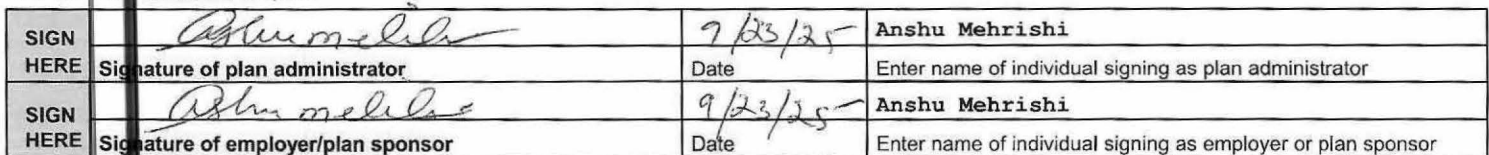 SIGN HERE
9/23/25 Anshu Mehrishi
Signature of plan administrator Date Enter name of individual signing as plan administrator
SIGN HERE
9/23/25 Anshu Mehrishi
Signature of employer/plan sponsor Date Enter name of individual signing as employer or plan sponsor